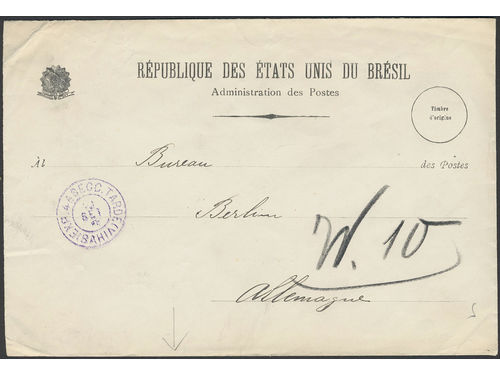 RÉPUBLIQUE DES ÉTATS UNIS DU BRÉSIL
Administration des Postes
Timbre
d'origine
Bureau des Postes
4A SECC. TARDE (VI)
BAHIA
SET
Berlin
W. 10
Allemagne